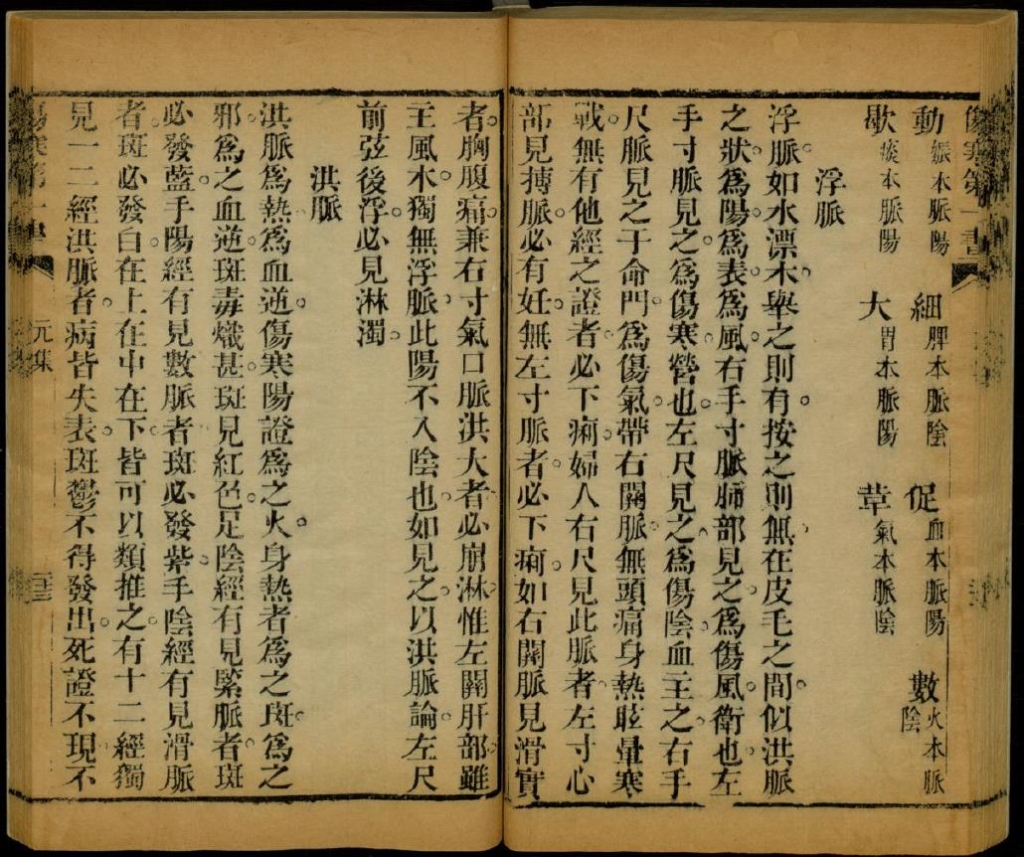 傷寒第一書
動脤本脈陽 細脾本脈陰 促血本脈陽 數火本脈陰
歇痰本脈陽 大胃本脈陽 革氣本脈陰
浮脈
浮脈如水漂木舉之則有按之則無在皮毛之間似洪脈
之狀爲陽爲表爲風右手寸脈肺部見之爲傷風衛也左
手寸脈見之爲傷寒營也左尺見之爲傷陰血主之右手
尺脈見之于命門爲傷氣帶右關脈無頭痛身熱眩暈寒
戰無有他經之證者必下痢婦人右尺見此脈者左寸心
部見摶脈必有妊無左寸脈者必下痢如右關脈見滑實
者胸腹痛兼右寸氣口脈洪大者必崩淋惟左關肝部雖
主風木獨無浮脈此陽不入陰也如見之以洪脈論左尺
前弦後浮必見淋濁
洪脈
洪脈爲熱爲血逆傷寒陽證爲之火身熱者爲之斑爲之
邪爲之血逆斑毒熾甚斑見紅色足陰經有見緊脈者斑
必發藍手陽經有見數脈者斑必發紫手陰經有見滑脈
者斑必發白在上在中在下皆可以類推之有十二經獨
見一二經洪脈者病皆失表斑鬱不得發出死證不現不
傷寒第一書 元集